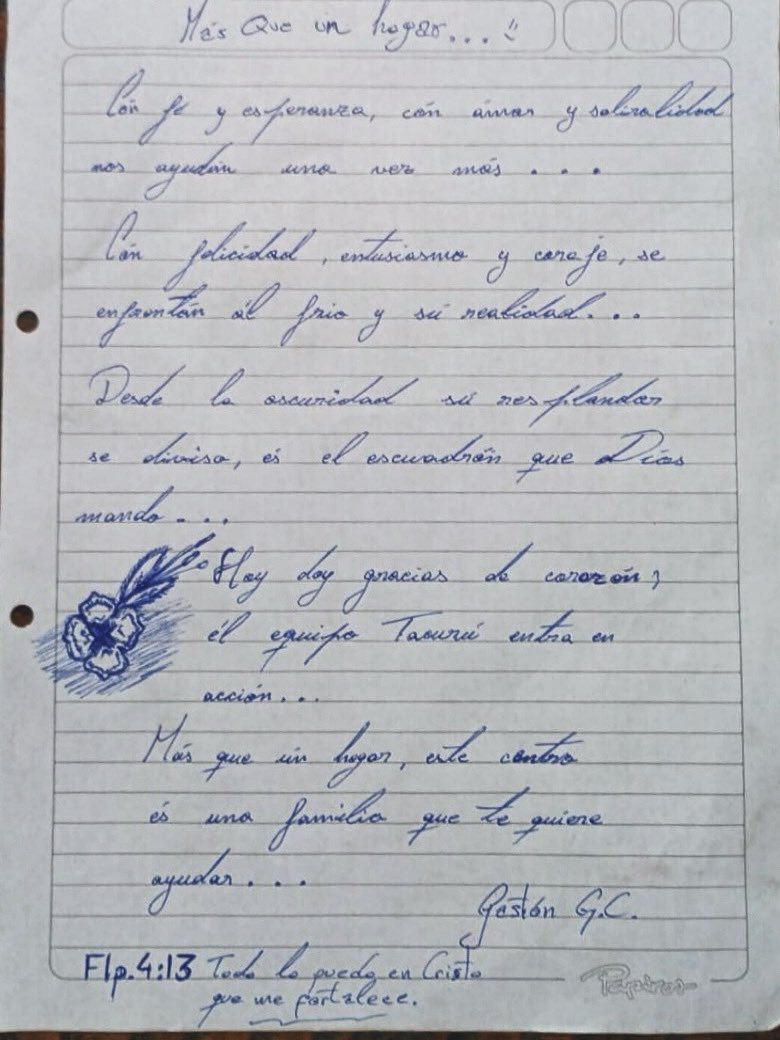 Más Que un hogar... :)
Cón fé y esperanza, cón ámor y solidalidad
nos ayudán una vez más . . .
Cón felicidad, entusiasmo y coraje, se
enfrontán ál frio y sú realidad...
Desde la oscuridad sú resplandor
se divisa, és el escuadrón que Dios
mando...
Hoy doy gracias de corazón,
él equipo Tacurú entra en
acción...
Más que ún hogar, este centro
és una familia que te quiere
ayudar...
Gastón G.C.
Flp. 4:13 Todo lo puedo en Cristo
que me fortalece.
Papiros